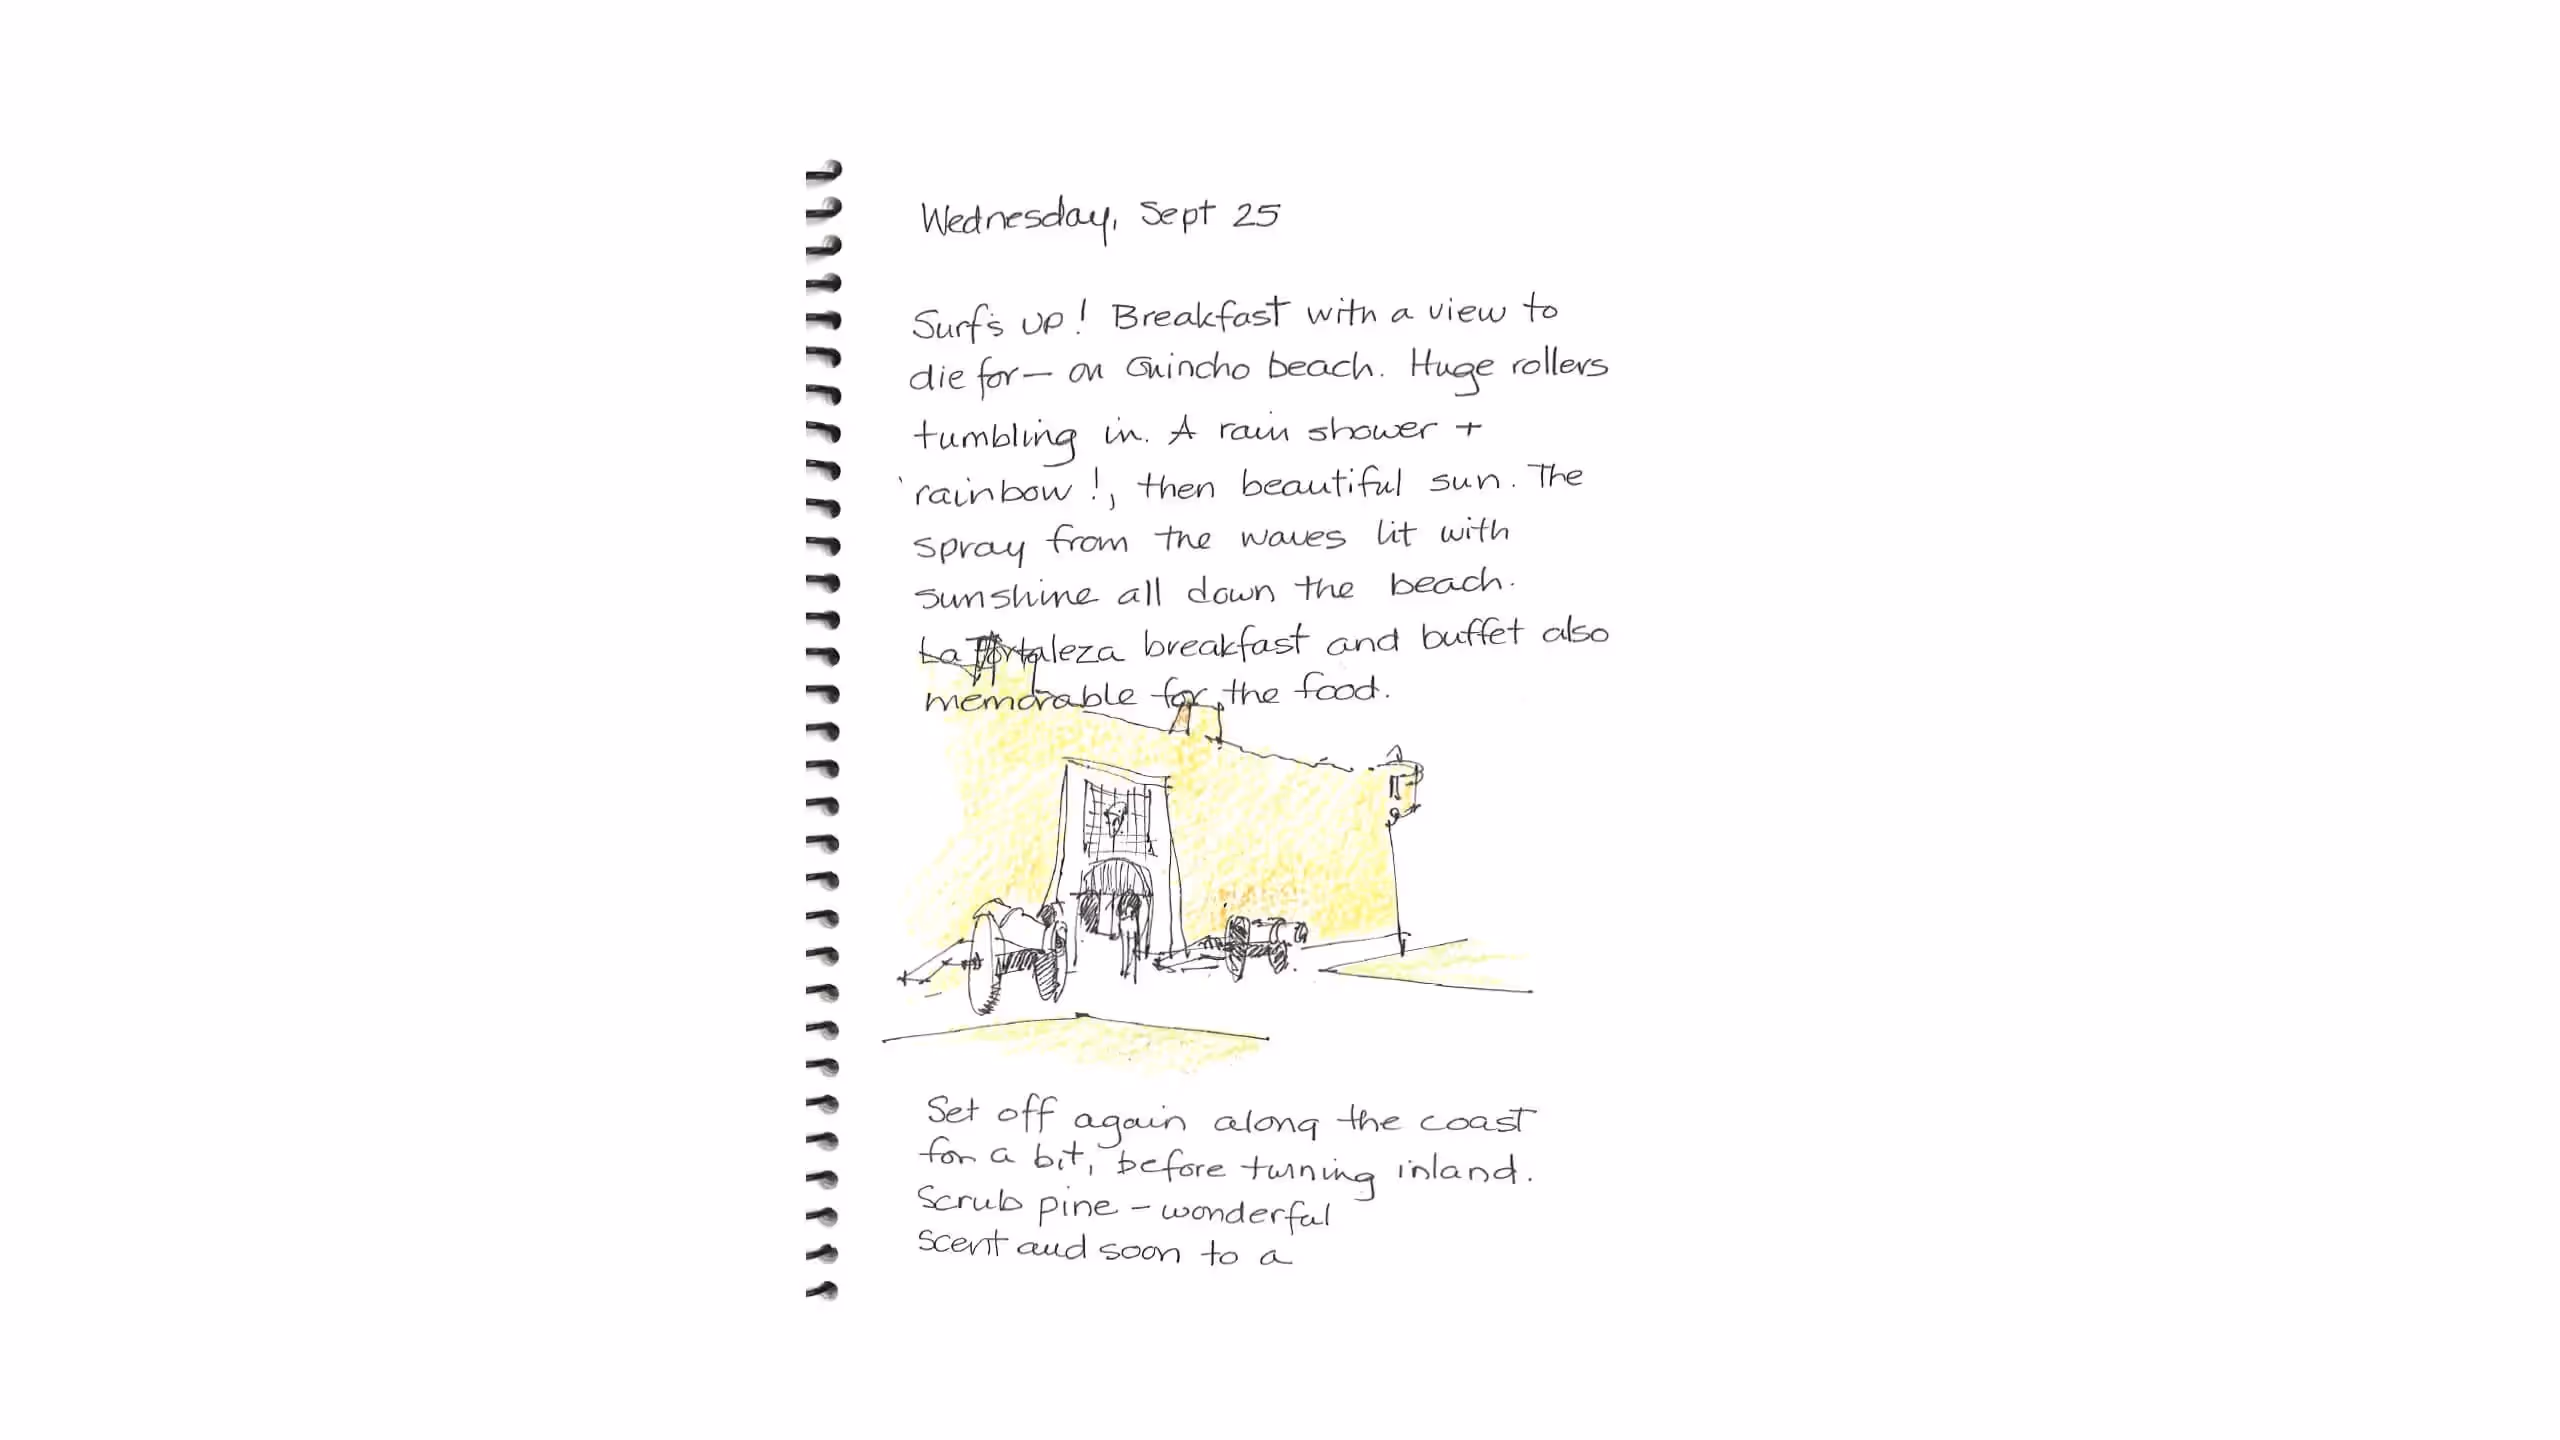 Wednesday, Sept 25
Surf's up! Breakfast with a view to
die for — on Guincho beach. Huge rollers
tumbling in. A rain shower +
rainbow!, then beautiful sun. The
spray from the waves lit with
sunshine all down the beach.
La Fortaleza breakfast and buffet also
memorable for the food.
Set off again along the coast
for a bit, before turning inland.
Scrub pine - wonderful
scent and soon to a